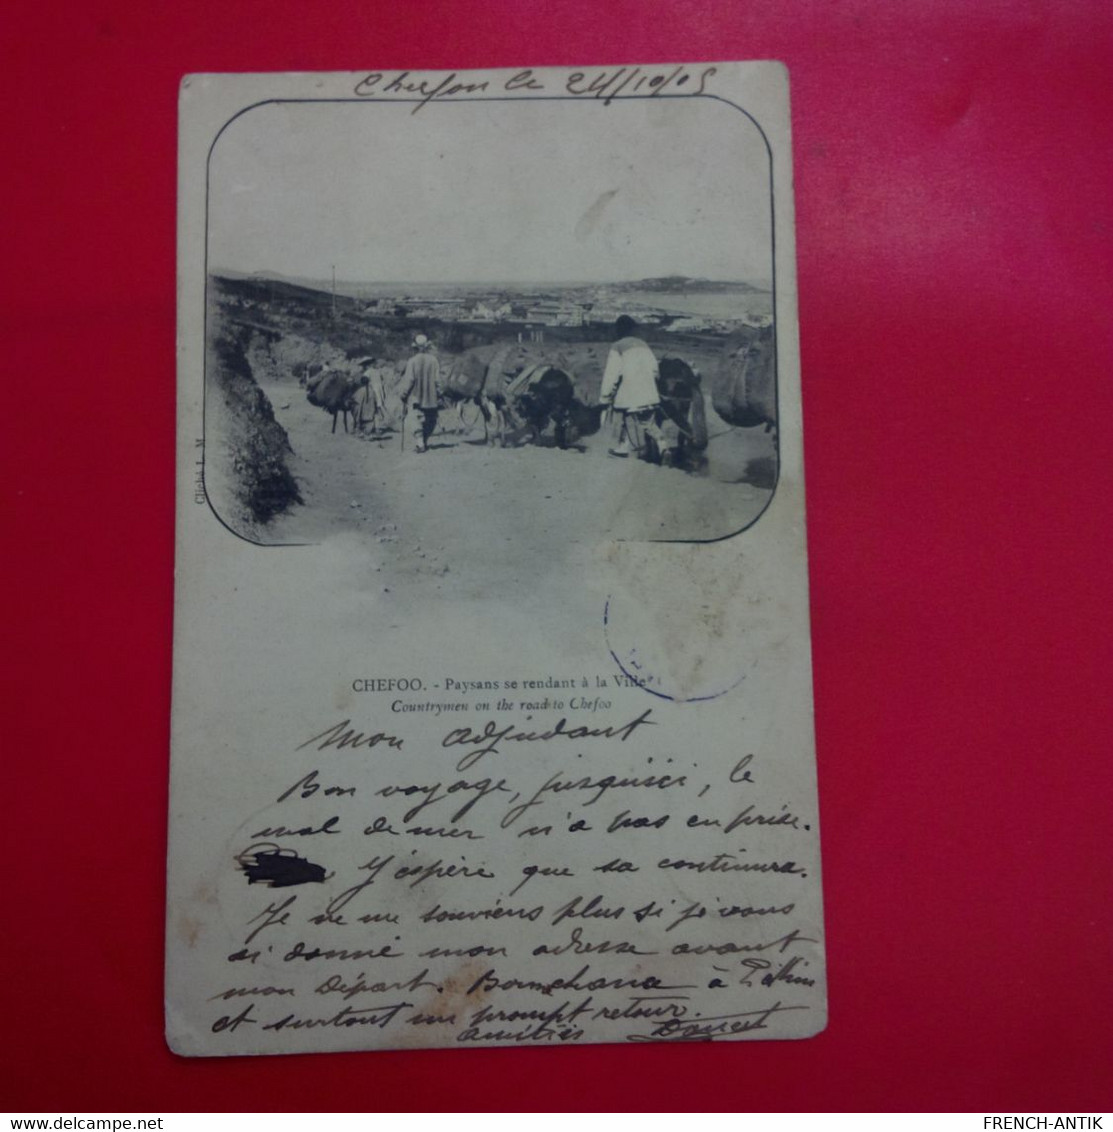 Chefoo le 24/10/05
Cliché L. M.
CHEFOO. - Paysans se rendant à la Ville
Countrymen on the road to Chefoo
Mon adjudant
Bon voyage, jusqu'ici, le
mal de mer n'a pas eu prise.
J'espère que sa continura.
Je ne me souviens plus si je vous
ai donné mon adresse avant
mon départ. Bonne chance à Pékin
et surtout un prompt retour.
amitiés
FRENCH-ANTIK
delcampe.net